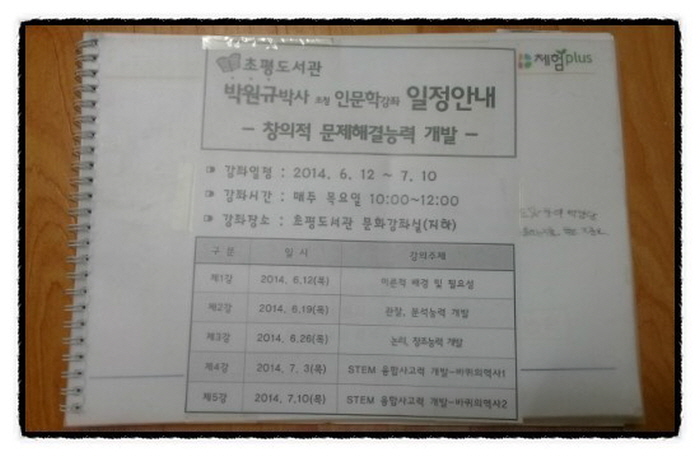 체험plus
초평도서관
박원규박사 초청 인문학강좌 일정안내
- 창의적 문제해결능력 개발 -
☞ 강좌일정 : 2014. 6. 12 ~ 7. 10
☞ 강좌시간 : 매주 목요일 10:00~12:00
☞ 강좌장소 : 초평도서관 문화강좌실(지하)
구 분 일 시 강의주제
제1강 2014. 6.12(목) 이론적 배경 및 필요성
제2강 2014. 6.19(목) 관찰, 분석능력 개발
제3강 2014. 6.26(목) 논리, 창조능력 개발
제4강 2014. 7. 3(목) STEM 융합사고력 개발-바퀴의역사1
제5강 2014. 7.10(목) STEM 융합사고력 개발-바퀴의역사2